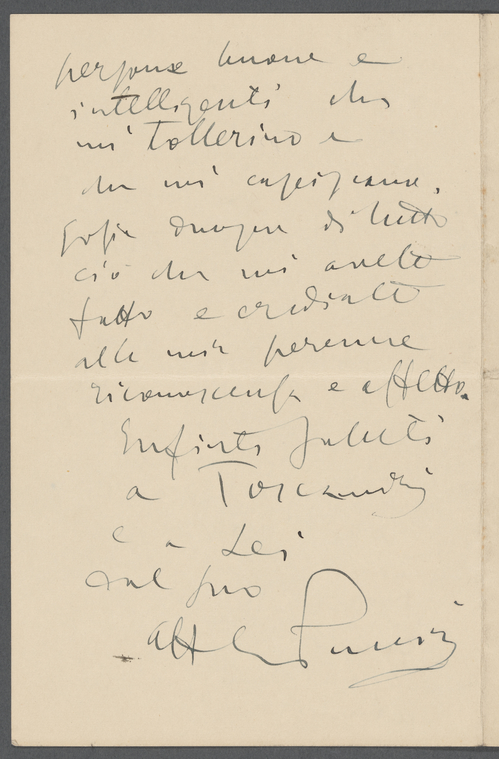 persone buone e
intelligenti che
mi tollerino e
che mi capiscano.
Grazie dunque di tutto
ciò che mi avete
fatto e crediate
alla mia perenne
riconoscenza e affetto.
Infiniti saluti
a Toscanini
e a Lei
dal suo
aff GPuccini